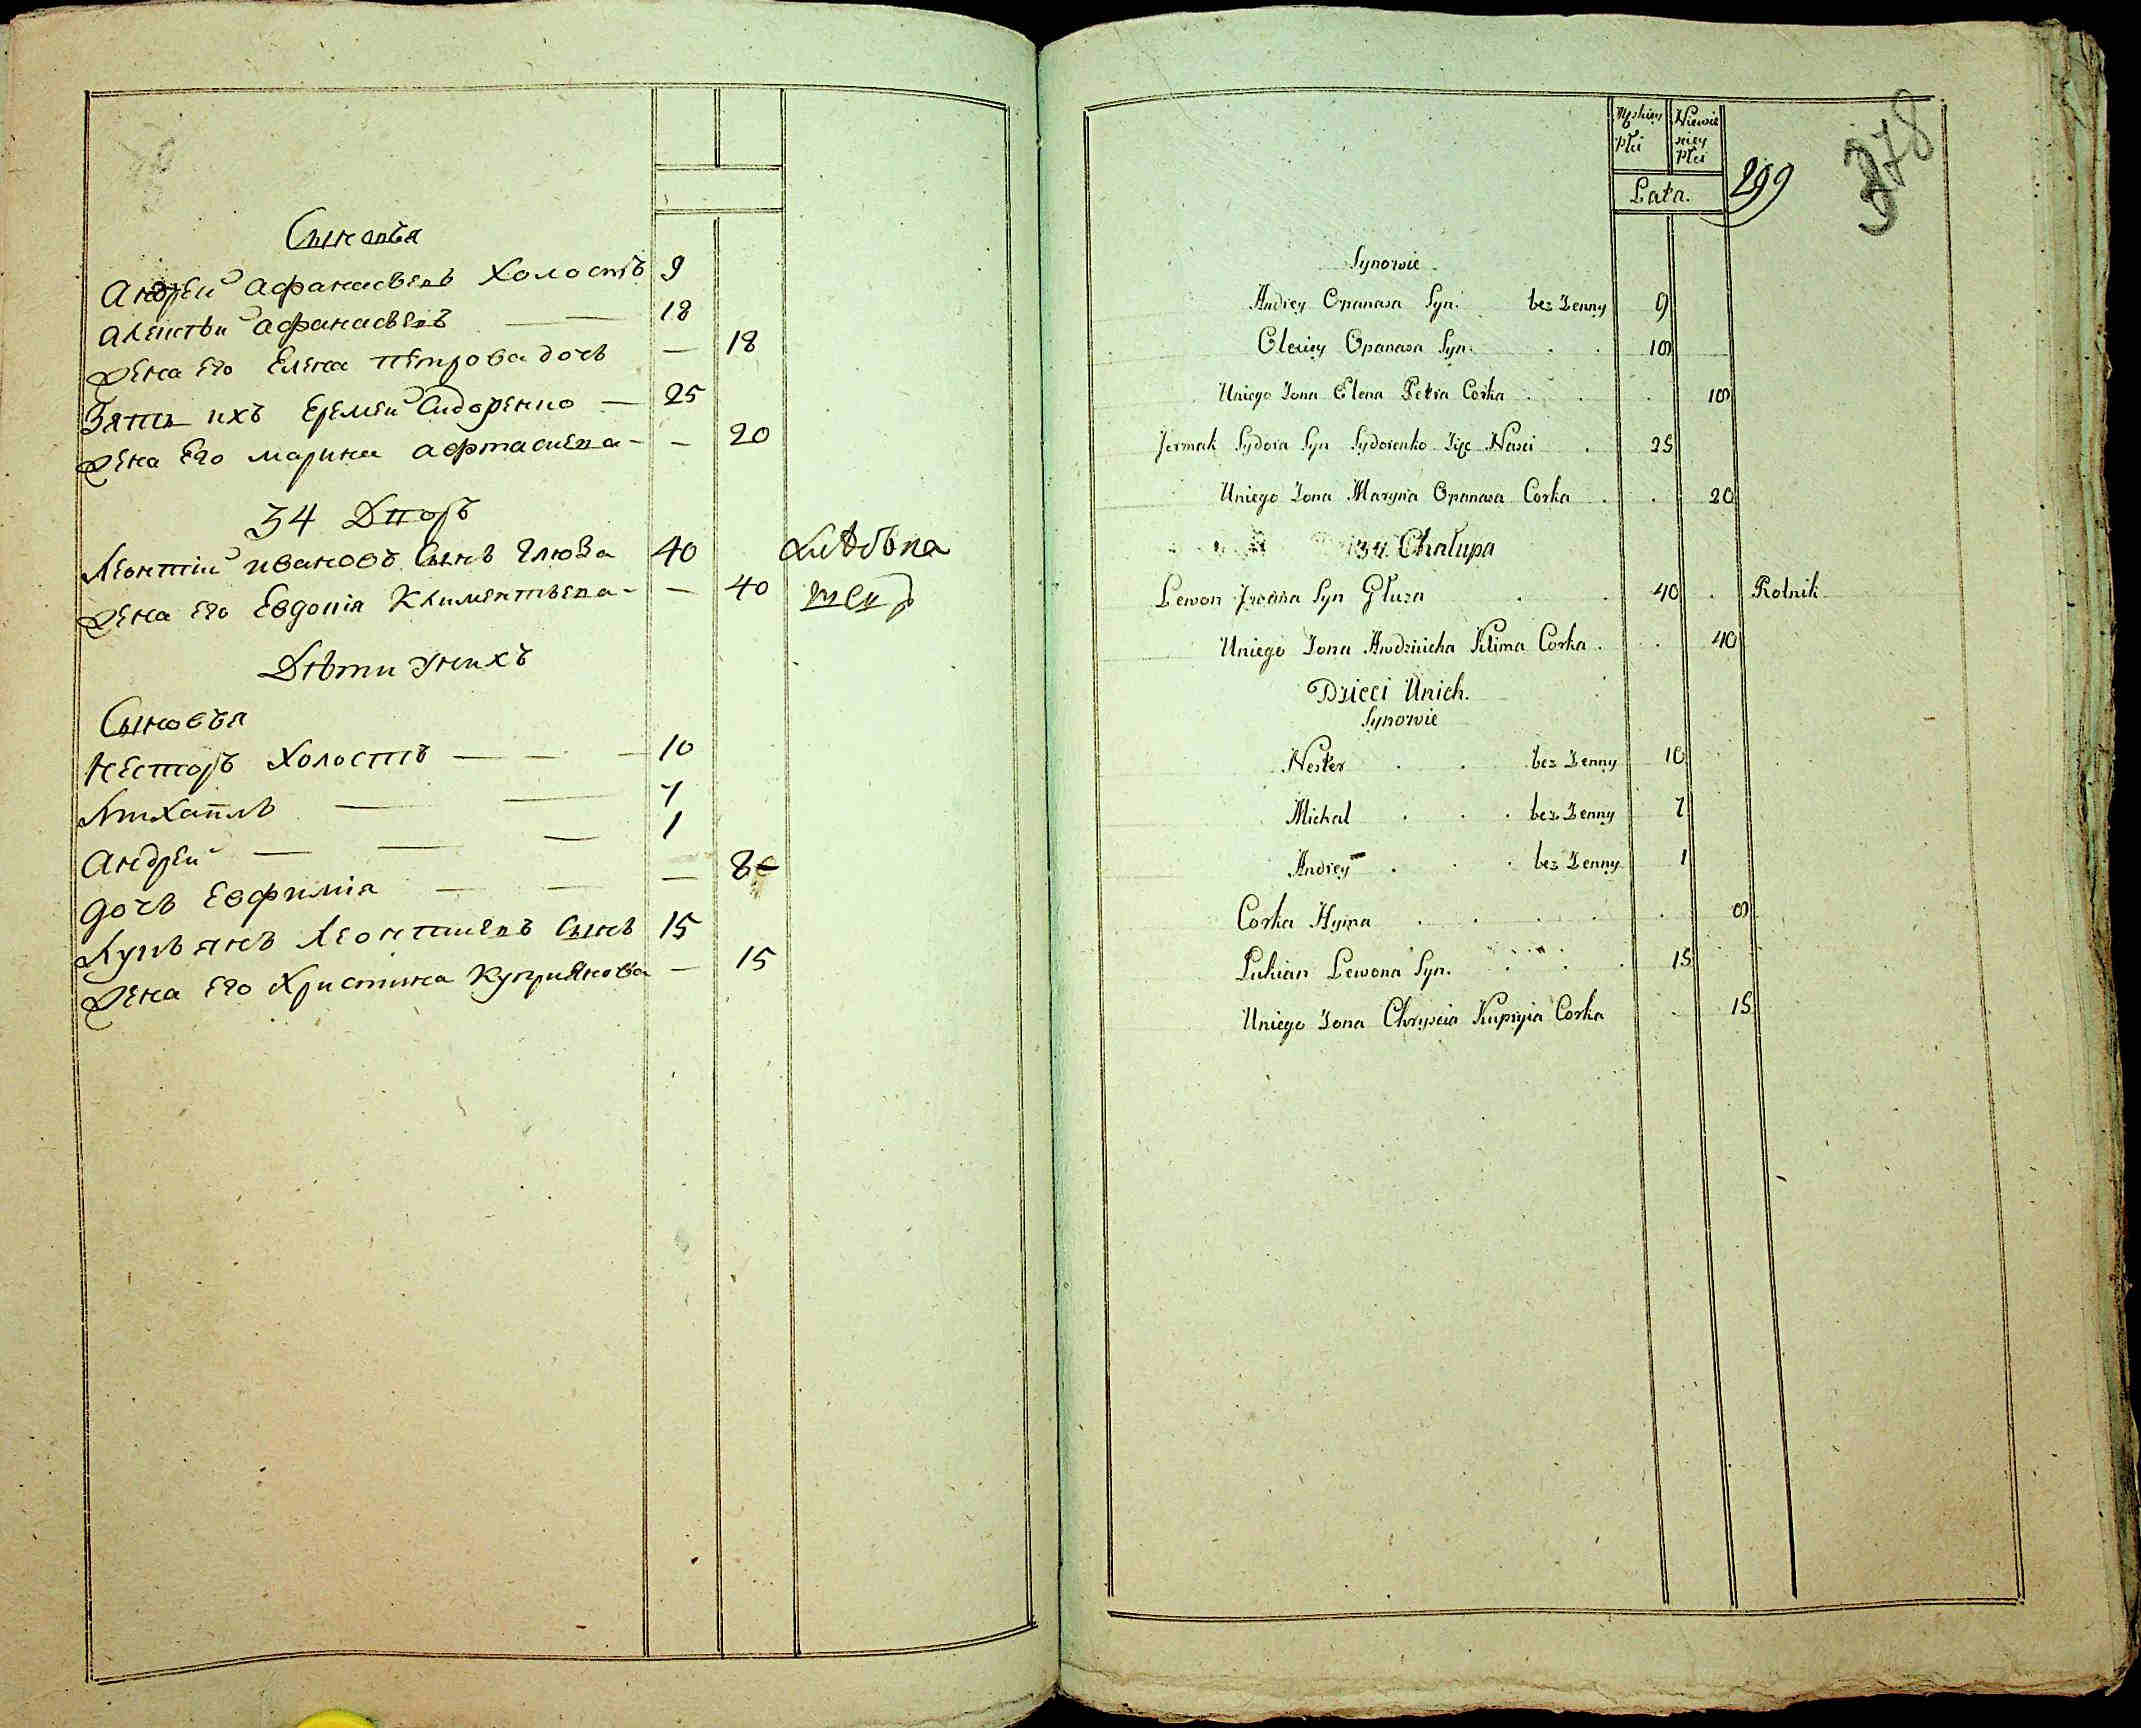 Сыновья
Андрей Афанасьевъ Холостъ 9
Алексѣй Афанасьевъ — — 18
Жена его Елена Петрова дочь — 18
Зять ихъ Еремей Сидоренко — 25
Жена его Марина Афтасиева — — 20
34 Дворъ
Леонтий Ивановъ Сынъ Глюза 40
Жена его Евдокія Климентьева — — 40
Хлѣбопа
шец
Дѣти у нихъ
Сыновья
Несторъ Холостъ — — — 10
Михайлъ — — 7
Андрей — — — 1
Дочь Евфимія — — — 8
Лукьянъ Леонтиевъ Сынъ 15
Жена его Христина Куприянова — 15
Męskiey płci
Niewieściey płci
Lata.
299
378
Synowie
Andrey Opanasa Syn. bez Zenny 9
Olexiey Opanasa Syn. . . 18
Uniego Zona Elena Petra Corka . . . 18
Jermak Sydora Syn Sydorenko Zięć Nasci . 25
Uniego Zona Maryna Opanasa Corka . . 20
34. Chałupa
Lewon Jwana Syn Głuza . . 40 . Rolnik
Uniego Zona Awdziucha Klima Corka . . 40
Dzieci Unich.
Synowie
Nester . . bez Zenny 10
Michal . . . bez Zenny 7
Andrey . . bez Zenny 1
Corka Hyma . . . . . 8
Lukian Lewona Syn. . . . 15
Uniego Zona Chryscia Kupryia Corka . 15